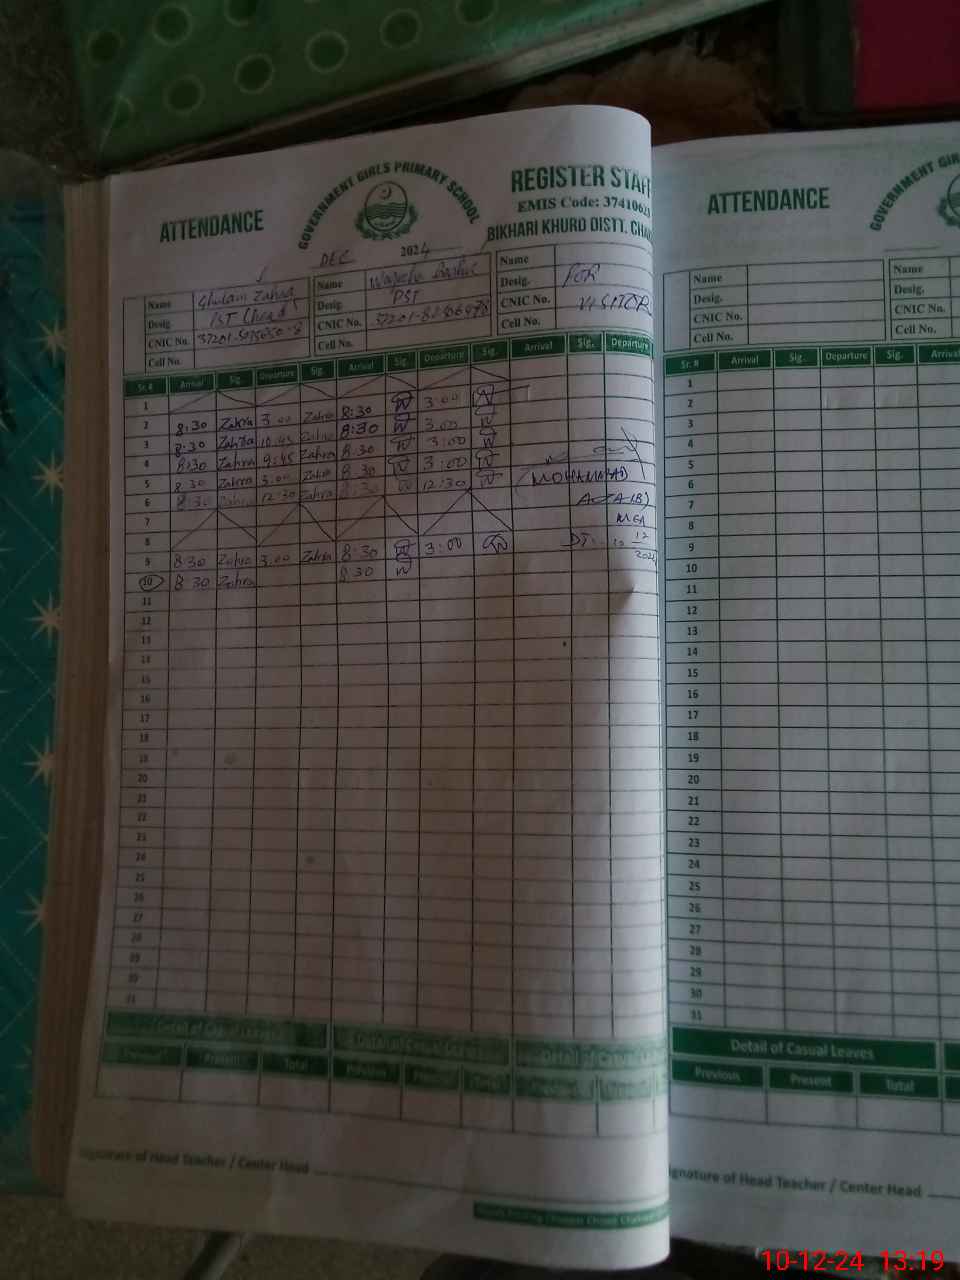 ATTENDANCE
GOVERNMENT GIRLS PRIMARY SCHOOL
REGISTER STAFF
EMIS Code: 3741062
BIKHARI KHURD DISTT. CHA
DEC 2024
Name Ghulam Zahra
Desig. PST (head)
CNIC No.
Cell No.
Name
Desig. PST
CNIC No.
Cell No.
Name FOR
Desig.
CNIC No. VISITOR
Cell No.
Sr. # Arrival Sig. Departure Sig. Arrival Sig. Departure Sig. Arrival Sig. Departure
1
2 8:30 Zahra 3:00 Zahra 8:30 W 3:00 W
3 8:30 Zahra 10:45 Zahra 8:30 W 3:00 W
4 8:30 Zahra 9:45 Zahra 8:30 W 3:00 W
5 8:30 Zahra 3:00 Zahra 8:30 W 3:00 W
6 8:30 Zahra 12:30 Zahra 8:30 W 12:30 W
MOHAMMAD
7
8
MEA
9 8:30 Zahra 3:00 Zahra 8:30 W 3:00 W
DT: 10 12 2024
10 8:30 Zahra 8:30 W
11
12
13
14
15
16
17
18
19
20
21
22
23
24
25
26
27
28
29
30
31
Detail of Casual Leaves Detail of Casual Leaves Detail of Casual Lea
Previous Present Total Previous Present Total Previous Present
Signature of Head Teacher / Center Head
ATTENDANCE
GOVERNMENT GIR
Name
Desig.
CNIC No.
Cell No.
Name
Desig.
CNIC No.
Cell No.
Sr. # Arrival Sig. Departure Sig. Arrival
1
2
3
4
5
6
7
8
9
10
11
12
13
14
15
16
17
18
19
20
21
22
23
24
25
26
27
28
29
30
31
Detail of Casual Leaves
Previous Present Total
ignature of Head Teacher / Center Head
10-12-24 13:19